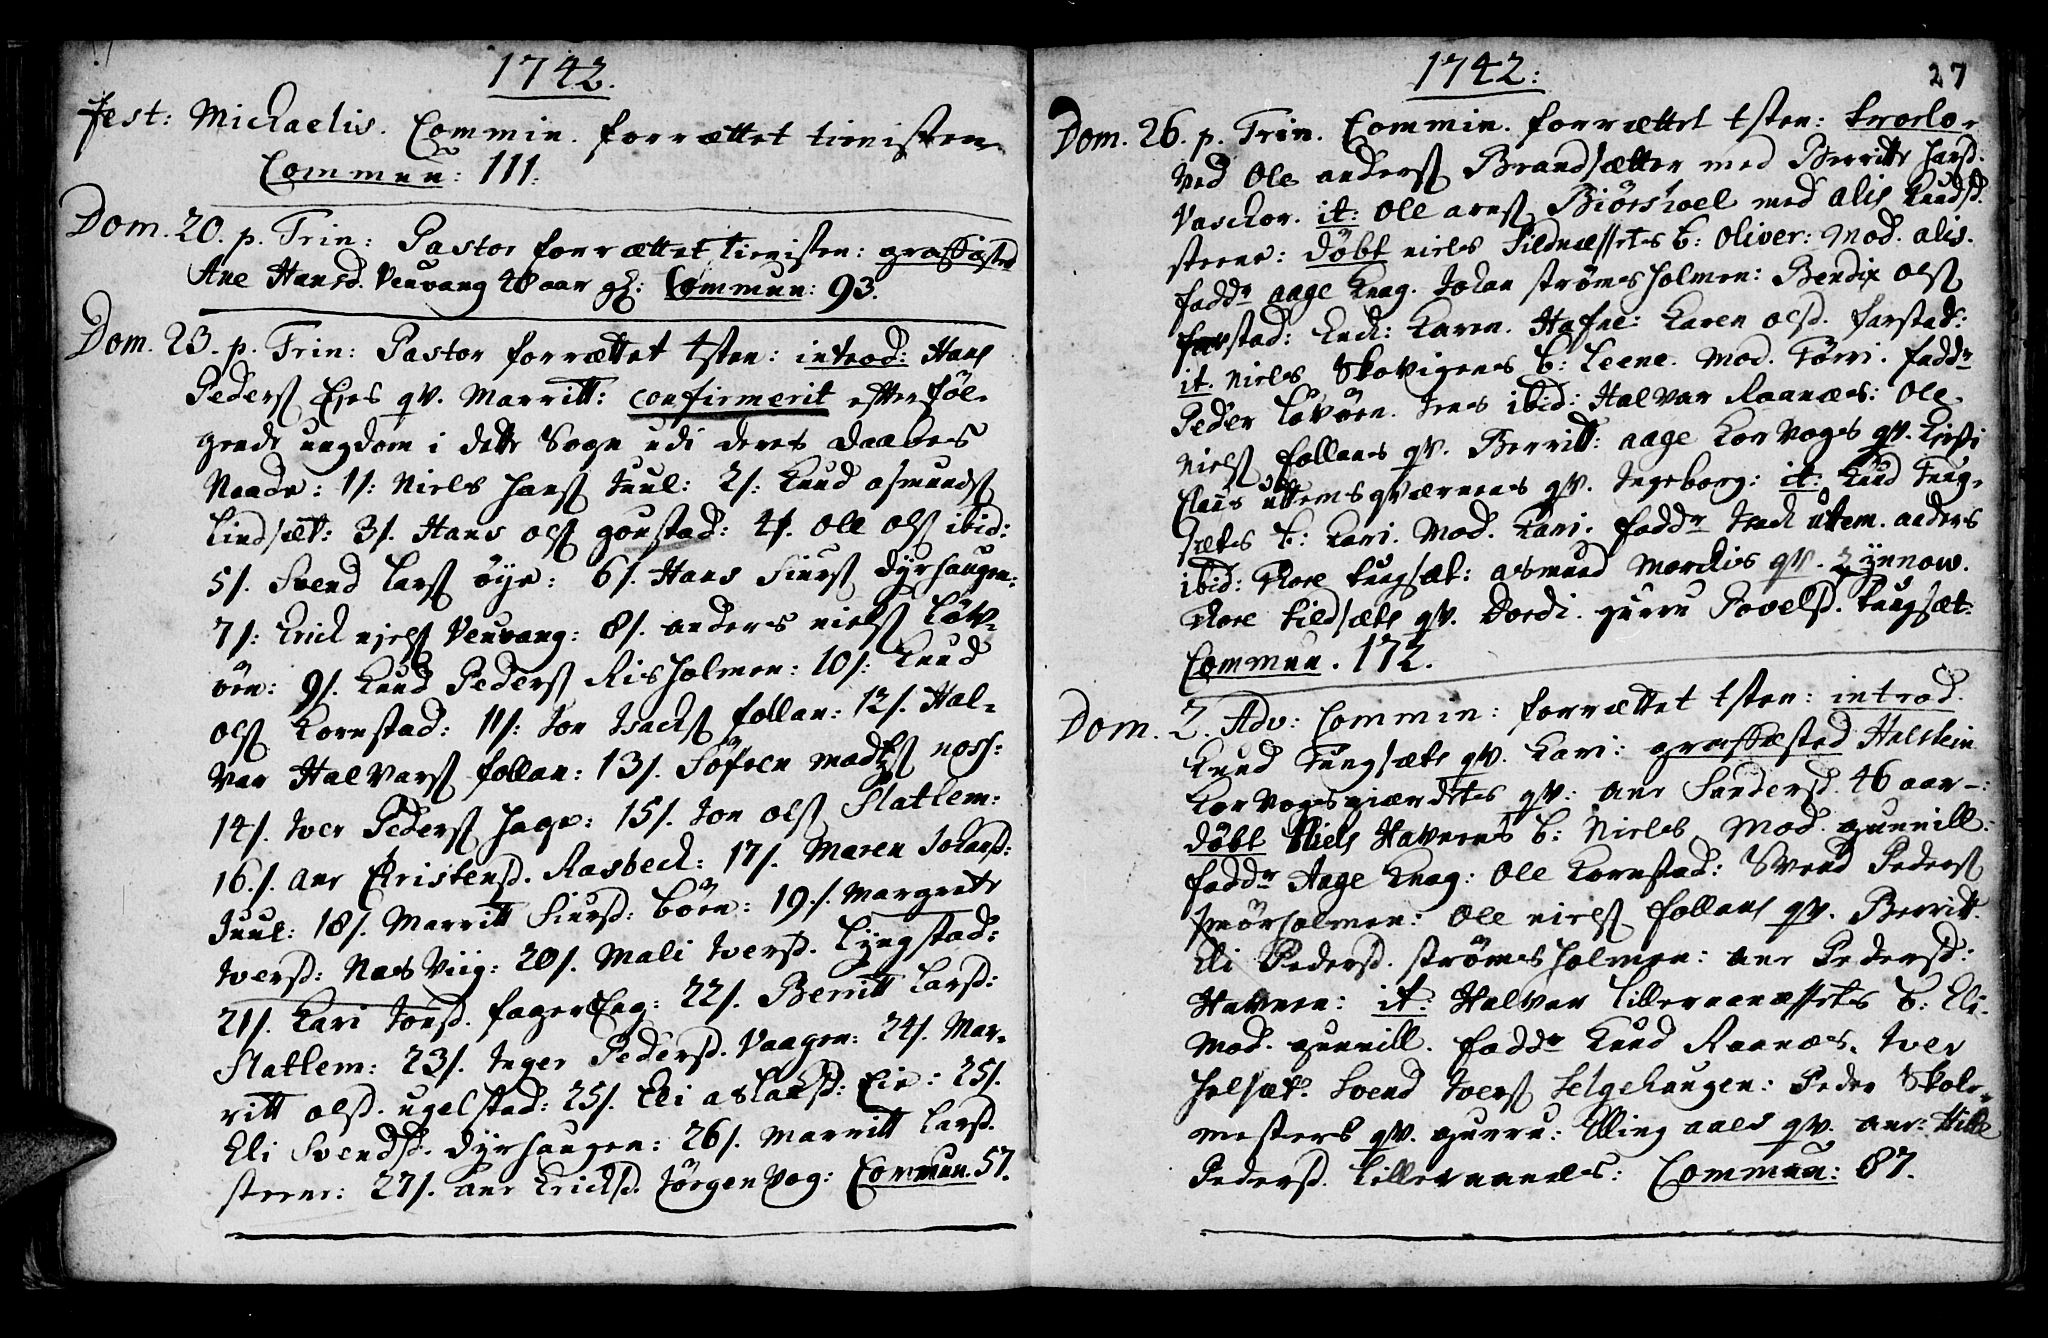 1742.
Fest: Michaelis. Commin. forrættet tienisten
Commun: 111.
Dom. 20. p. Trin: Pastor forrættet tienisten: graffæsted
Ane Hansd. Veuvang 48 aar gl: Commun: 93.
Dom. 23. p. Trin: Pastor forrættet tsten: introd: Hans
Peders Eies qv. Marritt: confirmerit efterføl-
gende ungdom i dette Sogn udi deres daabes
Naade: 1/: Niels Hans Juul: 2/: Knud Asmunds
Lindsæt: 3/. Hans Ols gonstad: 4/. Ole Ols ibid:
5/. Svend Lars øye: 6/. Hans Siurs dyrhaugen:
7/: Erich niels Veuvang: 8/. anders niels Løv-
öen: 9/. Knud Peders Risholmen: 10/: Knud
Ols Kornstad: 11/: Jon Isachs follan: 12/. Hal-
var Halvars follan: 13/. Söfren madtzs noss:
14/. Iver Peders Hage: 15/. Jon Ols Slatlem:
16./. ane Christensd. Aasbech: 17/. Maren Johansd:
Juul: 18/. Marritt Siursd: böen: 19./. Margrete
Iversd: Nas Viig: 20/. Mali Iversd. Lyngstad:
21/. Kari Jonsd. fagerleg: 22/. Berritt Larsd:
Slatlem: 23/. Inger Pedersd. Vaagen: 24/. Mar-
ritt olsd. ugelstad: 25/. Eli aslaksd: Eie: 25/.
Eli Svendsd. dyrhaugen: 26/. Marritt Larsd.
steene: 27/. ane Erichsd. Jörgenvog: Commun. 57.
1742:
27
Dom. 26. p. Trin. Commin. forrættet tsten: trolo-
ved Ole anders Brandsætter med Berritte Hansd.
Vaschor. it: Ole arns Biörshoel med alis Knudsd.
steene: döbt niels Sildnæssets b: Oliver: Mod. alis.
faddr aage Knag. Johan strømsholmen: Bendix Ols
farstad: Knch: Karen. Hafne: Karen olsd. farstad:
it. niels Skovigens b: Leene. Mod. Törri. faddr
Peder Lövöen. Jens ibid: Halvar Raanæs: Ole
niels follans qv. Berritt: aage Korvogs qv. Kirsti
Claus uttemsqværnens qv. Ingeborg: it: Knud Tung-
sæts b: Kari. Mod. Kari. faddr Isach utem. anders
ibid: Tore tungsæt: asmund Merchis qv. Zynnow.
Tore Sildsæts qv. Dordi. guru Povelsd. tungsæt:
Commun. 172.
Dom. 2. Adv: Commin: forrættet tsten: introd.
Knud Tungsæts qv. Kari: graffæsted Halstein
Korvogsgiærdets qv: ane Sundersd. 46 aar -:
döbt Niels Havnens b: Niels. Mod. gunnill:
faddr Aage Knag: Ole Kornstad: Svend Peders
smörholmen: Ole niels follans qv. Berritt.
Eli Pedersd. strømsholmen: ane Pedersd:
Havnen: it: Halvar Lilleraanæssets b: Eli.
Mod. gunnill. faddr Knud Raanæs. Iver
Holsæt. Svend Ivers Helgehaugen: Peder Skole-
mesters qv. gunru: Elling aaes qv. ane: Kitte
Pedersd. Lilleraanæs: Commun: 87.